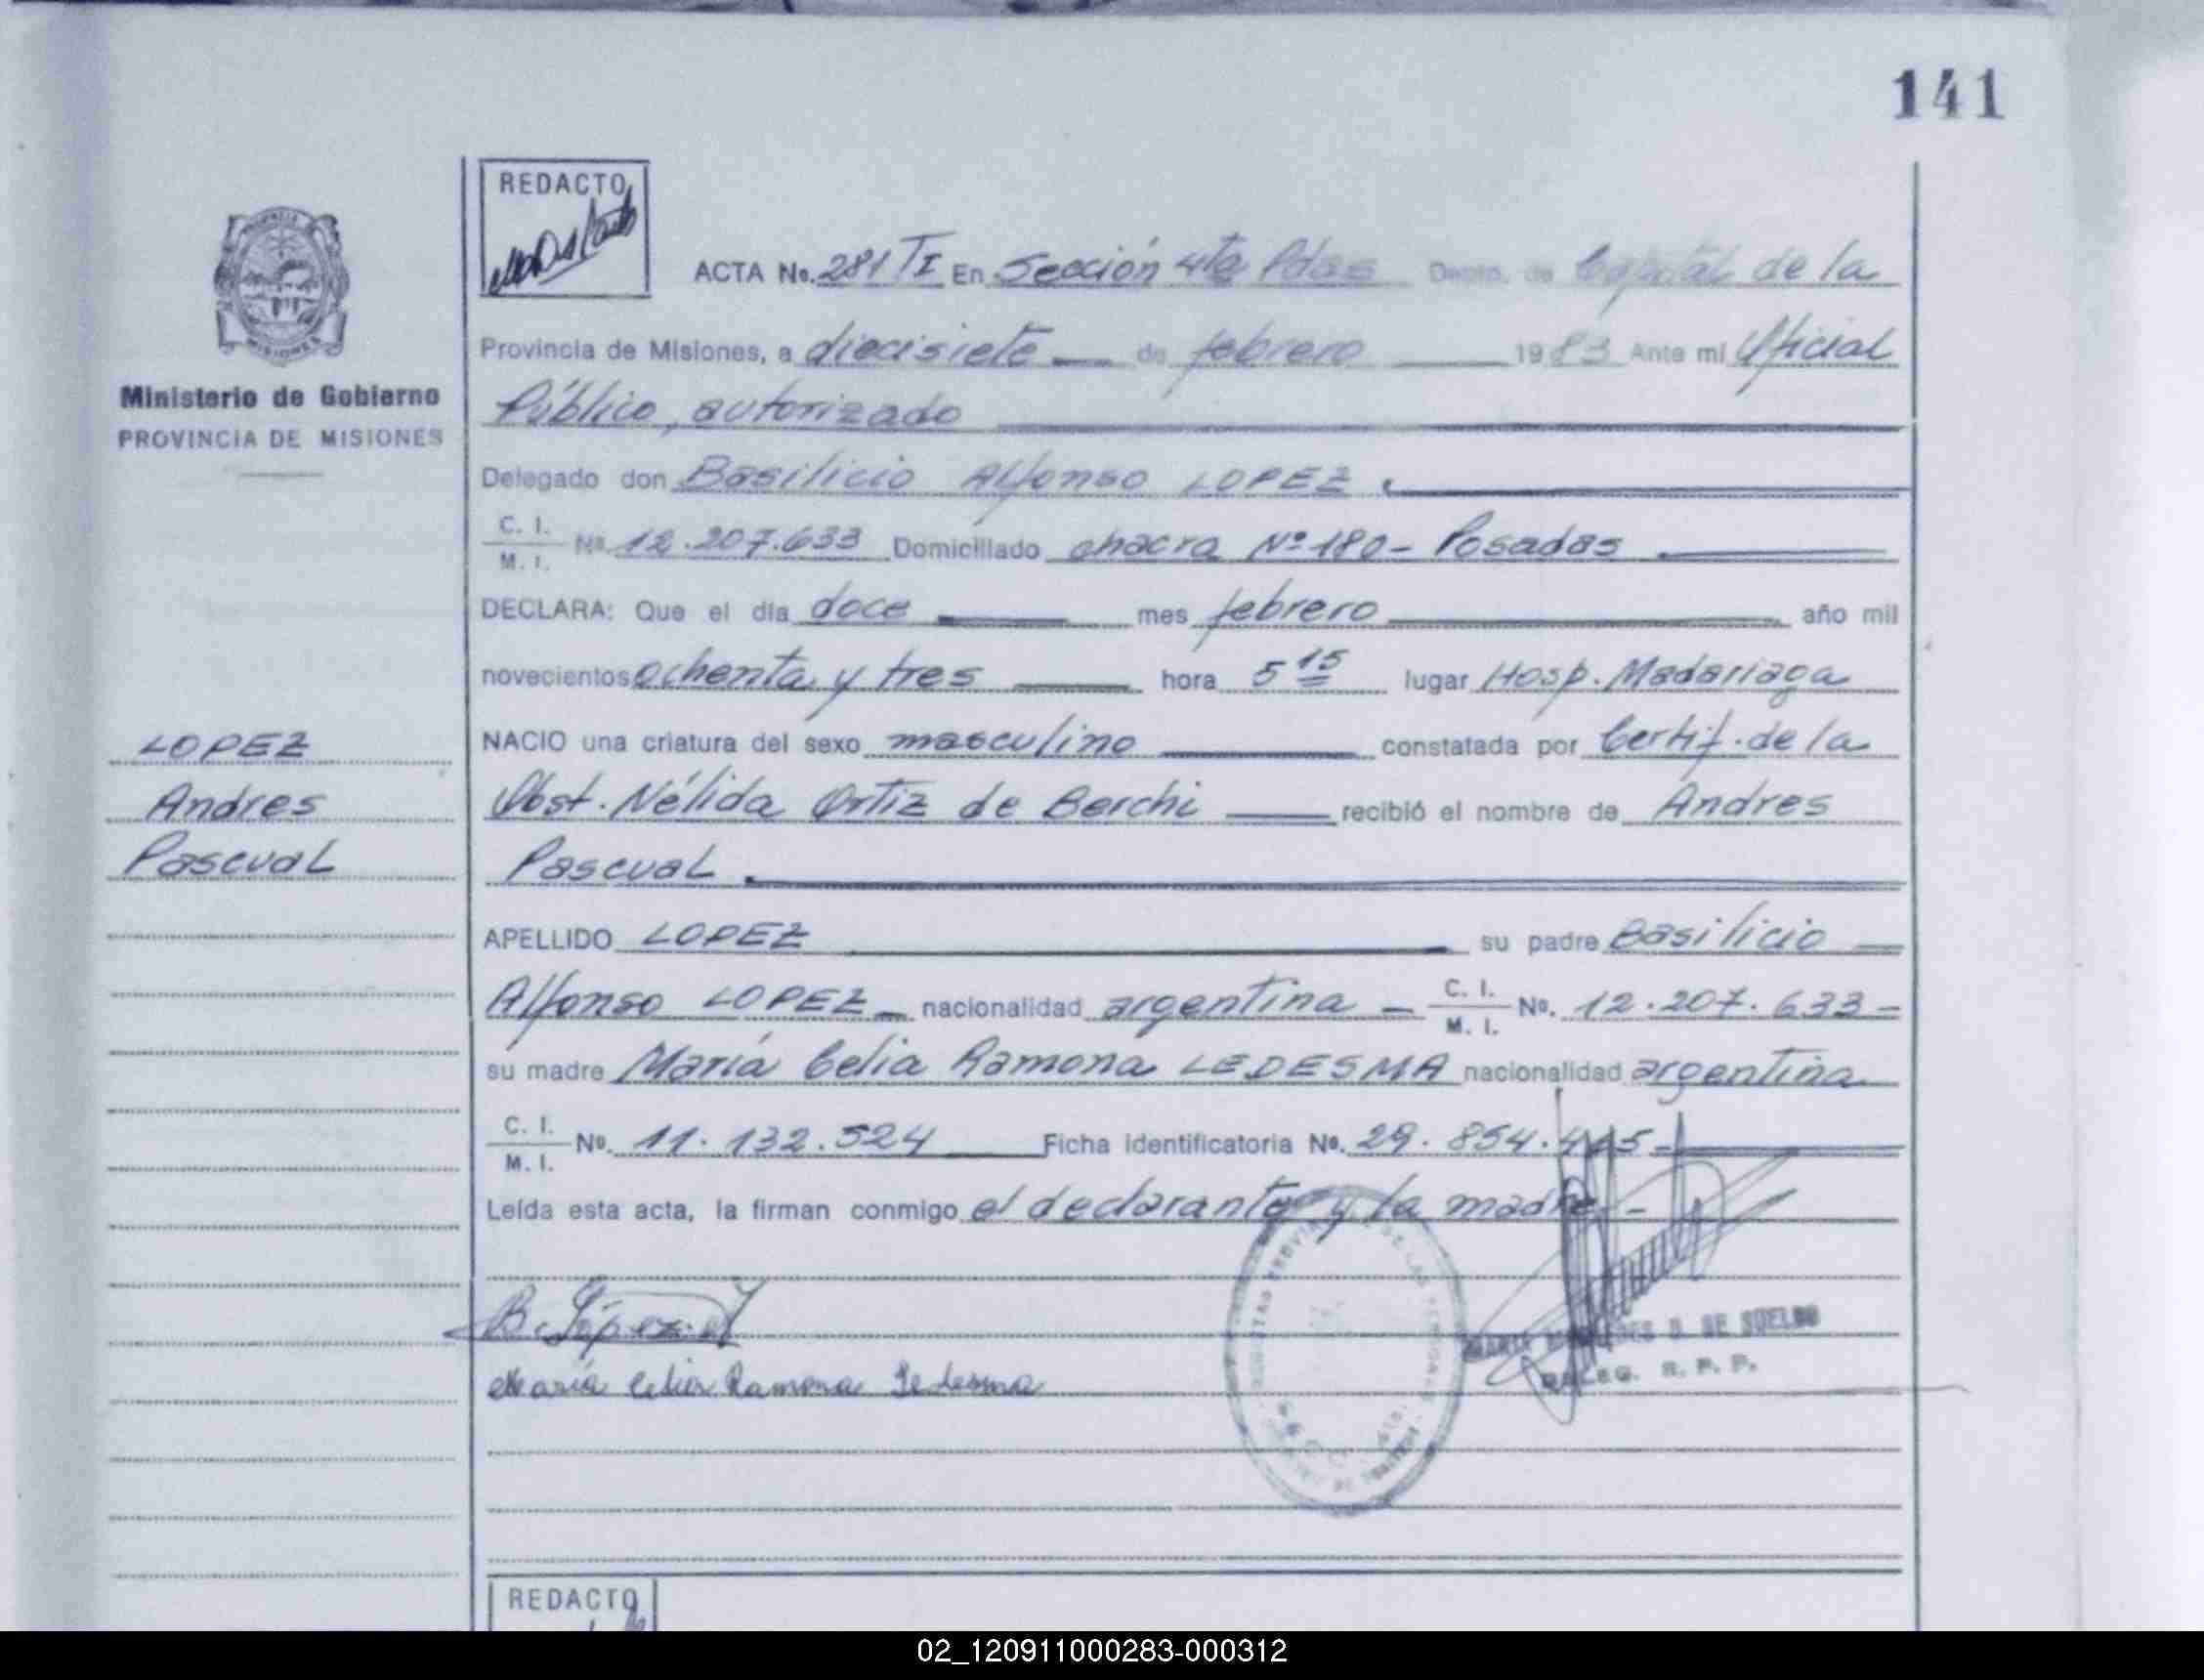 141
REDACTO
ACTA No. 281 TI En Sección 4ta Pdas Depto. de Capital de la
Provincia de Misiones, a diecisiete de febrero 1983 Ante mí Oficial
Público, autorizado
Delegado don Basilicio Alfonso LOPEZ
C. I.
M. I. No. 12.207.633 Domiciliado chacra Nº 180 - Posadas
DECLARA: Que el día doce mes febrero año mil
novecientos ochenta y tres hora 5 15 lugar Hosp. Madariaga
NACIO una criatura del sexo masculino constatada por Certif. de la
Obst. Nélida Ortiz de Berchi recibió el nombre de Andres
Pascual
APELLIDO LOPEZ su padre Basilicio
Alfonso LOPEZ nacionalidad argentina - C. I.
M. I. No. 12.207.633 -
su madre María Celia Ramona LEDESMA nacionalidad argentina
C. I.
M. I. No. 11.132.524 Ficha identificatoria No. 29.854.445 -
Leída esta acta, la firman conmigo el declarante y la madre. -
B. López
María Celia Ramona Ledesma
DE SUELDO
DELEG. R. P. P.
MISIONES
Ministerio de Gobierno
PROVINCIA DE MISIONES
LOPEZ
Andres
Pascual
REDACTO
02_120911000283-000312